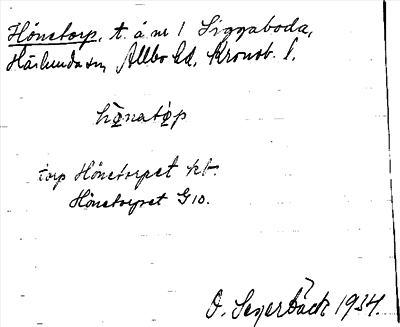 Hönetorp, t. å. nr 1 Siggaboda,
Härlunda sn, Allbo hd, Kronob. l.
hǫ̈natǫ̈p
torp Hönetorpet kt.
Hönetorpet G10.
O. Segerbäck 1934.